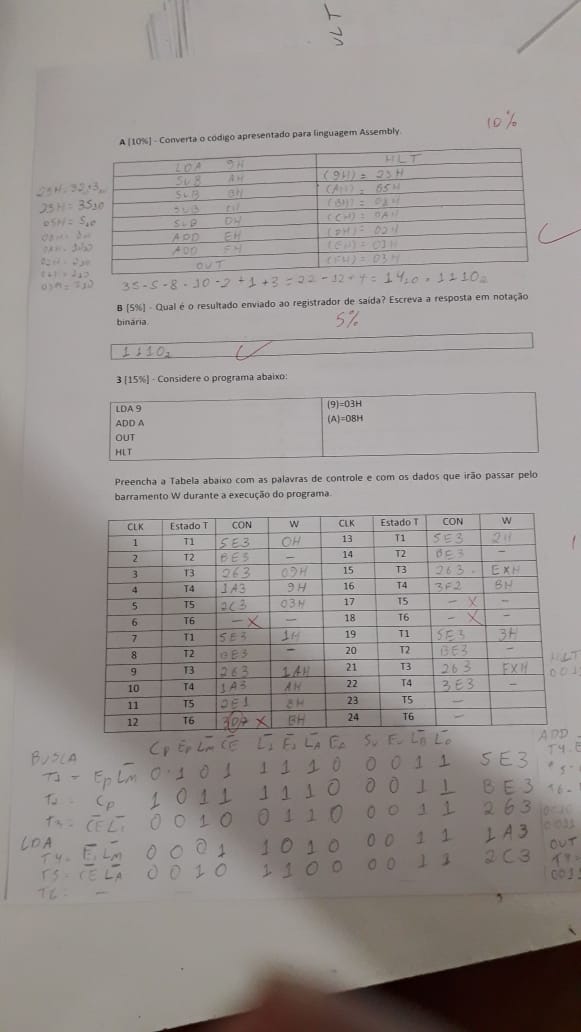 VLT
10%
A [10%] - Converta o código apresentado para linguagem Assembly.
LDA 9H HLT
SUB AH (9H) = 23H
SUB BH (AH) = 05H
SUB (BH) = 08H
SUB DH (CH) = 0AH
ADD EH (DH) = 02H
ADD FH (EH) = 01H
OUT (FH) = 03H
23H = 35₁₀
05H = 5₁₀
35-5-8-10-2+1+3=22-12+4=14₁₀=1110₂
B [5%] - Qual é o resultado enviado ao registrador de saída? Escreva a resposta em notação
binária.
5%
1110₂
3 [15%] - Considere o programa abaixo:
LDA 9 (9)=03H
ADD A (A)=08H
OUT
HLT
Preencha a Tabela abaixo com as palavras de controle e com os dados que irão passar pelo
barramento W durante a execução do programa.
CLK Estado T CON W CLK Estado T CON W
1 T1 5E3 0H 13 T1 5E3 2H
2 T2 BE3 – 14 T2 BE3 –
3 T3 263 09H 15 T3 263 EXH
4 T4 1A3 9H 16 T4 3F2 BH
5 T5 2C3 03H 17 T5 – X –
6 T6 – X – 18 T6 – X –
7 T1 5E3 1H 19 T1 5E3 3H
8 T2 BE3 – 20 T2 BE3 –
9 T3 263 1AH 21 T3 263 FXH
10 T4 1A3 AH 22 T4 3E3 –
11 T5 2E1 8H 23 T5 –
12 T6 X BH 24 T6 –
HLT
Cp E̅p̅ L̅m̅ C̅E̅ L̅ı̅ E̅ı̅ L̅A̅ EA Su Eu L̅B̅ L̅o̅
ADD
BUSCA
T1 = Ep L̅m̅ 0 1 0 1 1 1 1 0 0 0 1 1 5E3
T2 = Cp 1 0 1 1 1 1 1 0 0 0 1 1 BE3
T3 = C̅E̅ L̅ı̅ 0 0 1 0 0 1 1 0 0 0 1 1 263
LDA
T4 = E̅ı̅ L̅m̅ 0 0 0 1 1 0 1 0 0 0 1 1 1A3
OUT
T5 = C̅E̅ L̅A̅ 0 0 1 0 1 1 0 0 0 0 1 1 2C3
T6 = –